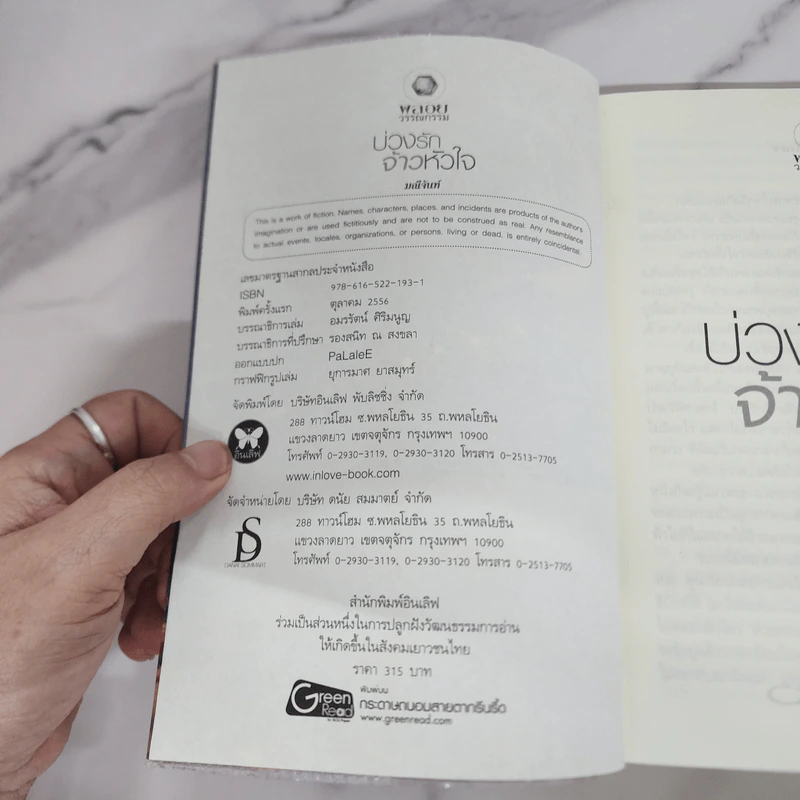 พลอย
วรรณกรรม
บ่วงรัก
จ้าวหัวใจ
มณีจันท์
This is a work of fiction. Names, characters, places, and incidents are products of the authors
imagination or are used fictitiously and are not to be construed as real. Any resemblance
to actual events, locales, organizations, or persons, living or dead, is entirely coincidental.
เลขมาตรฐานสากลประจำหนังสือ
ISBN 978-616-522-193-1
พิมพ์ครั้งแรก ตุลาคม 2556
บรรณาธิการเล่ม อมรรัตน์ ศิริมนูญ
บรรณาธิการที่ปรึกษา รองสนิท ณ สงขลา
ออกแบบปก PaLaleE
กราฟฟิกรูปเล่ม ยุการมาศ ยาสมุทร์
จัดพิมพ์โดย บริษัทอินเลิฟ พับลิชชิ่ง จำกัด
288 ทาวน์โฮม ซ.พหลโยธิน 35 ถ.พหลโยธิน
แขวงลาดยาว เขตจตุจักร กรุงเทพฯ 10900
อินเลิฟ
โทรศัพท์ 0-2930-3119, 0-2930-3120 โทรสาร 0-2513-7705
www.inlove-book.com
จัดจำหน่ายโดย บริษัท ดนัย สมมาตย์ จำกัด
288 ทาวน์โฮม ซ.พหลโยธิน 35 ถ.พหลโยธิน
DS
แขวงลาดยาว เขตจตุจักร กรุงเทพฯ 10900
DANAI SOMMART
โทรศัพท์ 0-2930-3119, 0-2930-3120 โทรสาร 0-2513-7705
สำนักพิมพ์อินเลิฟ
ร่วมเป็นส่วนหนึ่งในการปลูกฝังวัฒนธรรมการอ่าน
ให้เกิดขึ้นในสังคมเยาวชนไทย
ราคา 315 บาท
Green
Read
พิมพ์บน
กระดาษถนอมสายตากรีนรี้ด
www.greenread.com
บ่วง
จ้า